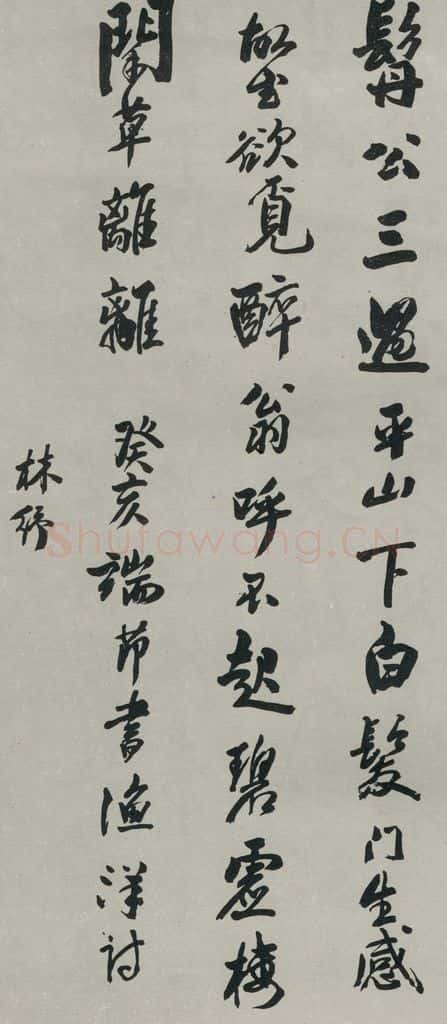 髯公三過平山下白髮门生感
故欲覓醉翁呼不起碧虛樓
閣草離離 癸亥端節書漁洋詩
林紓
Shufawang.CN